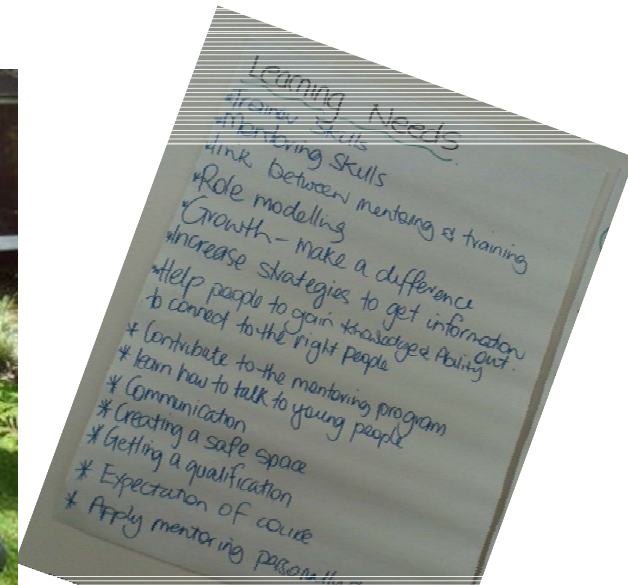 Learning Needs
*Trainer Skills
*Mentoring Skills
*Link between mentoring & training
*Role modelling
*Growth - make a difference
*Increase strategies to get information out.
*Help people to gain knowledge & Ability
to connect to the right people
* Contribute to the mentoring program
* learn how to talk to young people
* Communication
* Creating a safe space
* Getting a qualification
* Expectation of course
* Apply mentoring personally